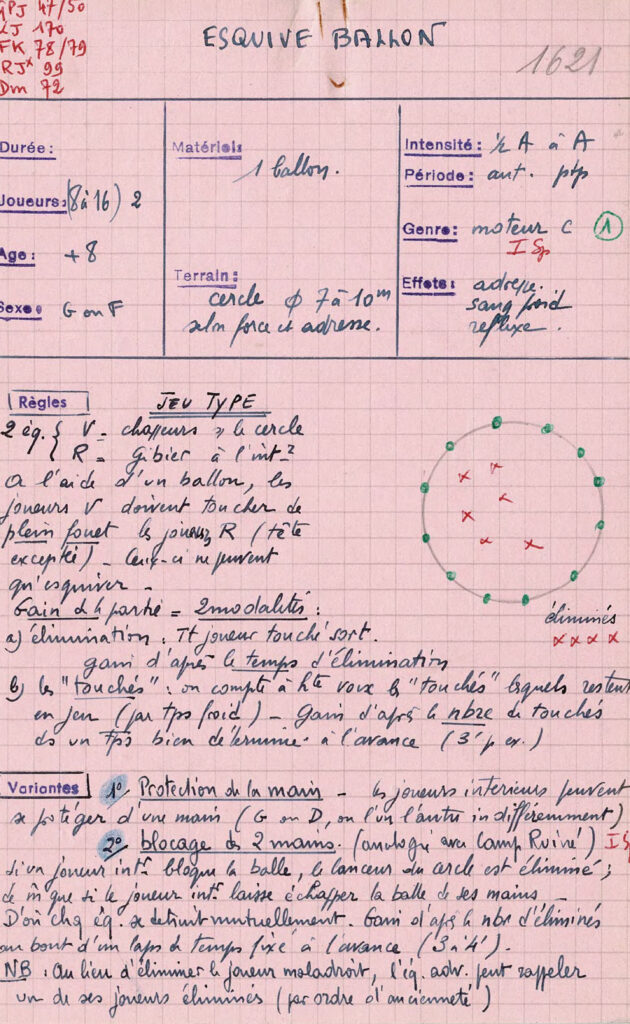 GPJ 47/50
LJ 170
FK 78/79
RJx 99
Dm 72
ESQUIVE BALLON
1621
Durée:
Joueurs: (8 à 16) 2
Age: +8
Sexe: G ou F
Matériel:
1 ballon.
Terrain:
cercle ϕ 7 à 10m
selon force et adresse.
Intensité: ½ A à A
Période: aut. ptp
Genre: moteur C 1
I Sp
Effets: adresse.
sang froid
reflexe.
Règles JEU TYPE
2 éq. { V = chasseurs le cercle
R = Gibier à l'intr
A l'aide d'un ballon, les
joueurs V doivent toucher de
plein fouet les joueurs R (tête
exceptée) - Ceux-ci ne peuvent
qu'esquiver -
Gain de la partie = 2 modalités :
a) élimination : Tt joueur touché sort.
gain d'après le temps d'élimination
b) les "touchés" : on compte à hte voix les "touchés" lesquels restent
en jeu (par tps froid) - Gain d'après le nbre de touchés
ds un tps bien déterminé à l'avance (3' p ex.)
éliminés
x x x x
Variantes 1° Protection de la main - les joueurs intérieurs peuvent
se protéger d'une main (G ou D, ou l'un l'autre indifféremment)
2° blocage des 2 mains. (analogie avec Camp Ruiné) I Sp
Si un joueur intr bloque la balle, le lanceur du cercle est éliminé ;
de m̂ que si le joueur intr laisse échapper la balle de ses mains -
D'où chq éq. se détruit mutuellement. Gain d'après le nbr d'éliminés
au bout d'un laps de temps fixé à l'avance (3 à 4').
NB : Au lieu d'éliminer le joueur maladroit, l'éq. adv. peut rappeler
un de ses joueurs éliminés (par ordre d'ancienneté)